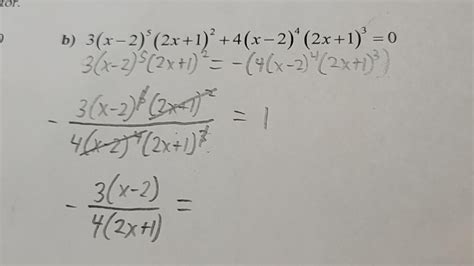 tor.
b) 3(x-2)⁵(2x+1)²+4(x-2)⁴(2x+1)³=0
3(x-2)⁵(2x+1)² = -(4(x-2)⁴(2x+1)³)
- 3(x-2)⁵(2x+1)² / 4(x-2)⁴(2x+1)³ = 1
- 3(x-2) / 4(2x+1) =